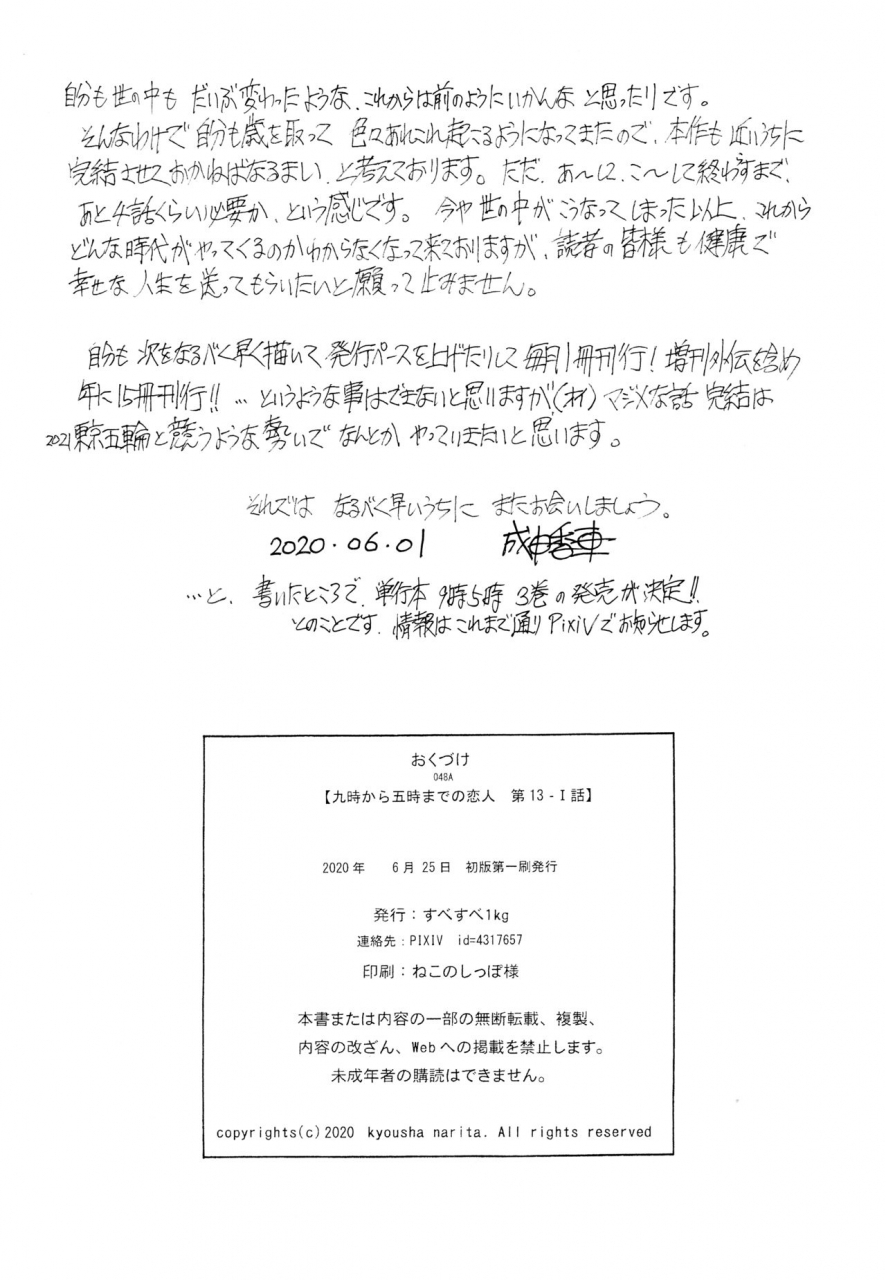 自分も世の中も だいぶ変わったような、これからは前のようにいかんな と思ったりです。
そんなわけで自分も歳を取って 色々あれこれ起こるようになってまたので、本作も近いうちに
完結させておかねばなるまい、と考えております。ただ、あ〜して、こ〜して終わすまで、
あと4話くらい必要か、という感じです。 今や世の中がこうなってしまった以上、これから
どんな時代がやってくるのかわからなくなって来ておりますが、読者の皆様も健康で
幸せな人生を送ってもらいたいと願って止みません。
自分も次をなるべく早く描いて、発行ペースを上げたりして毎月1冊刊行！増刊外伝を含め
年に15冊刊行!! …というような事はできないと思いますが(オイ) マジメな話 完結は
2021東京五輪と競うような勢いで なんとか やっていきたいと思います。
それでは なるべく早いうちに またお会いしましょう。
2020.06.01 成田香車
…と、書いたところで、単行本 9時5時 3巻の発売が決定!!
とのことです、情報はこれまで通りPixivでお知らせします。
おくづけ
048A
【九時から五時までの恋人 第13-I話】
2020年 6月25日 初版第一刷発行
発行：すべすべ1kg
連絡先：PIXIV id=4317657
印刷：ねこのしっぽ様
本書または内容の一部の無断転載、複製、
内容の改ざん、Webへの掲載を禁止します。
未成年者の購読はできません。
copyrights(c)2020 kyousha narita. All rights reserved